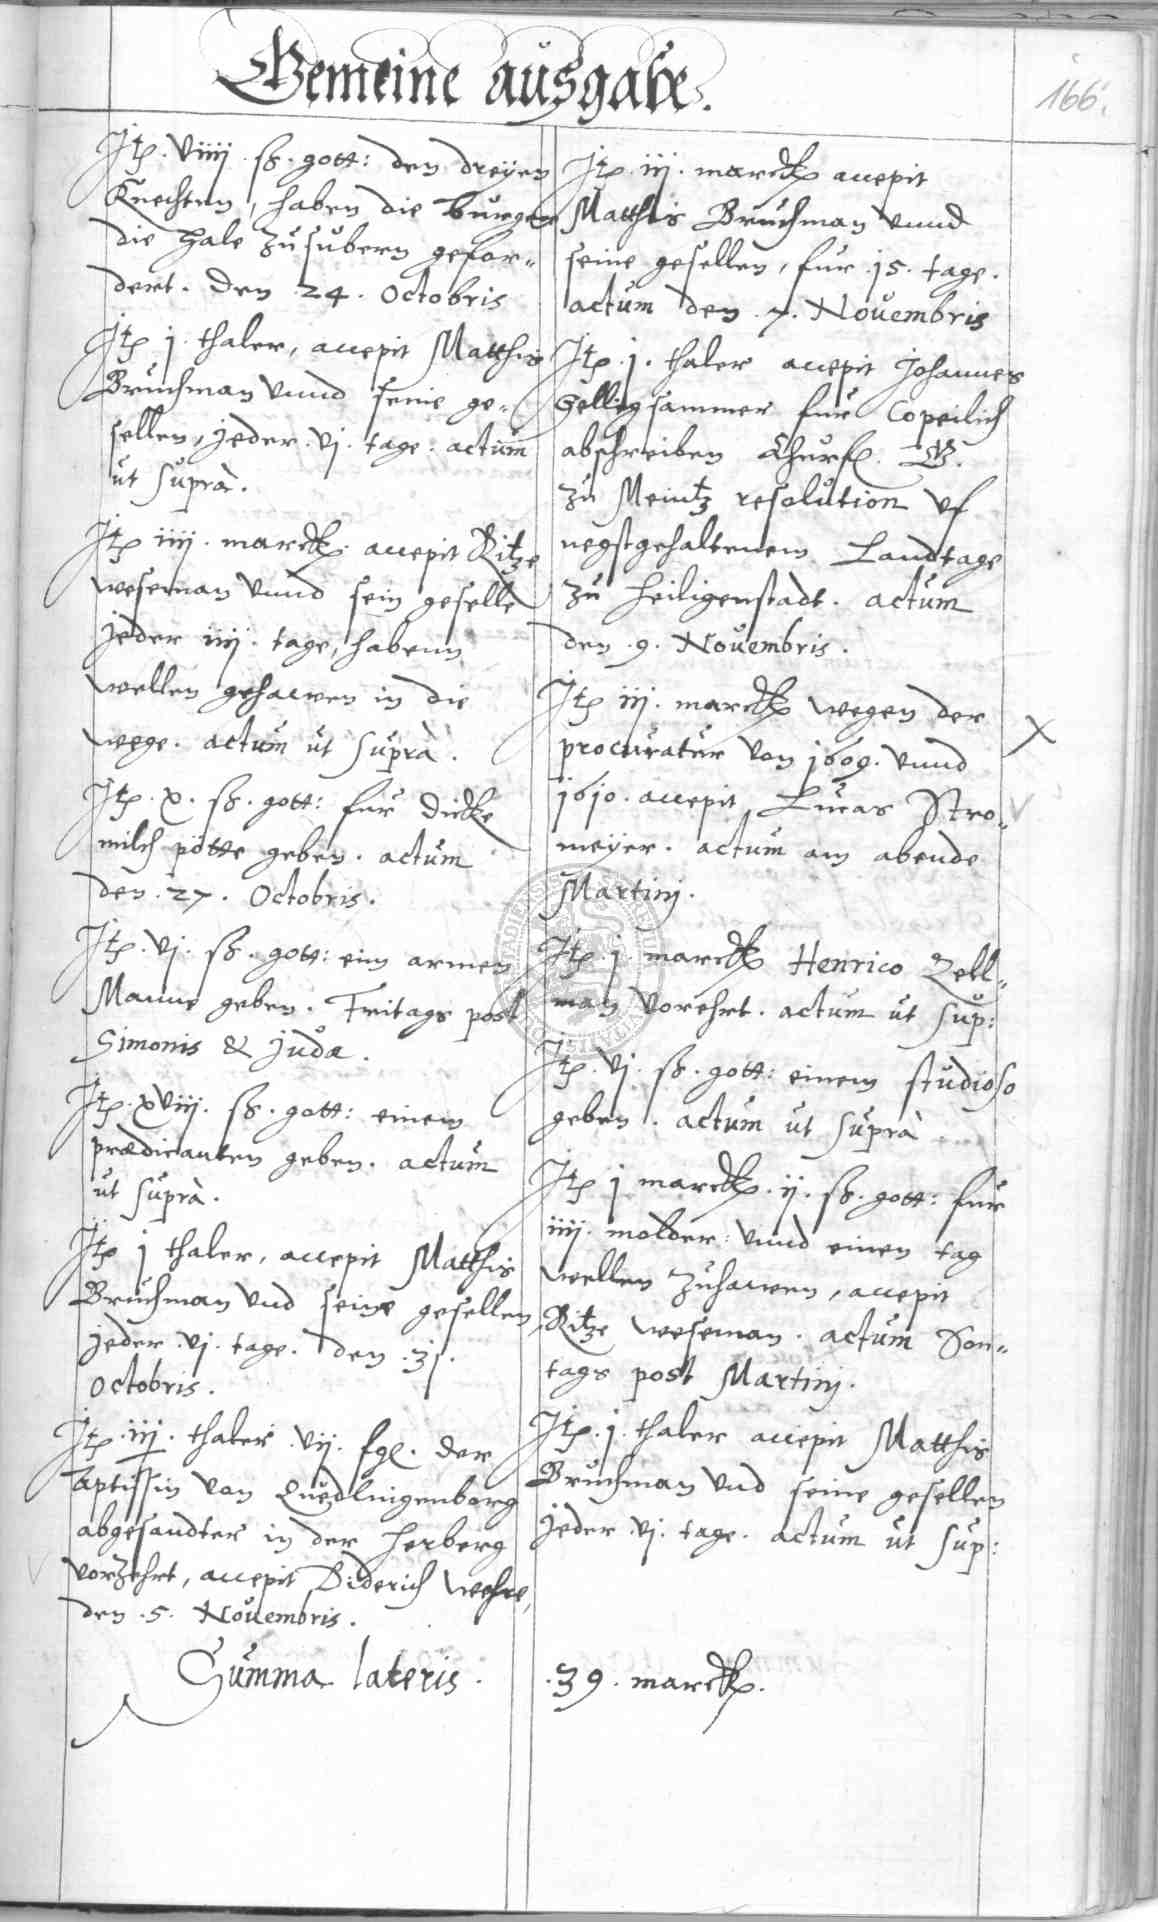 Gemeine ausgabe.
166.
Itp. viiij. sß. gott: den dreyen
Knechten, haben die burger
die hale zusubern gefor„
dert. den .24. Octobris
Itp j. thaler, accepit Matthis
Bruchman vnnd seine ge„
sellen, jeder .vj. tage: actum
ut suprà.
Itp iiij. marck. accepit Ritze
weseman vnnd sein geselle
jeder iiij. tage, habenn
wellen gehawen in die
wege. actum ut suprà.
Itp. x. sß. gott: fur dicke
milch pötte geben. actum
den .27. Octobris.
Itp. vj. sß. gott: eim armen
Manne geben. Fritags post
Simonis & Judæ.
Itp. xviij. sß. gott: einem
prædicanten geben. actum
ut suprà.
Itp j thaler, accepit Matthis
Bruchman vnd seine gesellen,
jeder .vj. tage. den .3j.
Octobris.
Itp. iij. thaler .vij. fgl. der
Eptissin von Quedlingenborg
abgesandter in der herberg
vorzehrt, accepit Diderich Wehre,
den .5. Novembris.
Itp. iij. marck accepit
Matthis Bruchman vnnd
seine gesellen, fur .15. tage.
actum den .7. Novembris
Itp. j. thaler accepit Johannes
Gellingsammer fur Copeilich
abschreiben Churf. G.
zu Meintz resolution vf
negstgehaltenem Landtage
zu Heiligenstadt. actum
den .9. Novembris.
Itp iij. marck wegen der
procuratur von 1609. vnnd
1610. accepit Lucas Stro„
meyer. actum am abende
Martinj.
Itp. j. marck Henrico Zell„
man vorehrt. actum ut sup:
Itp. vj. sß. gott: einem studioso
geben. actum ut suprà
Itp j marck. ij. sß. gott: fur
iiij. molder: vnnd einen tag
wellen zuhawen, accepit
Ritze weseman. actum Son„
tags post Martinj.
Itp. j. thaler accepit Matthis
Bruchman vnd seine gesellen
jeder .vj. tage. actum ut sup:
Summa lateris. .39. marck.